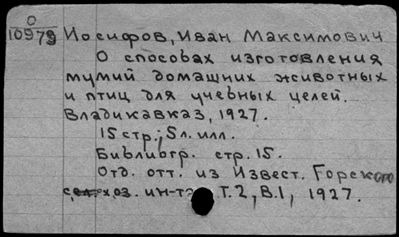 О
10979
Иосифов, Иван Максимович
О способах изготовления
мумий домашних животных
и птиц для учебных целей.
Владикавказ, 1927.
15 стр.; 5 л. илл.
Библиогр. стр. 15.
Отд. отт. из Извест. Горского
сельхоз. ин-та Т. 2, В. 1, 1927.